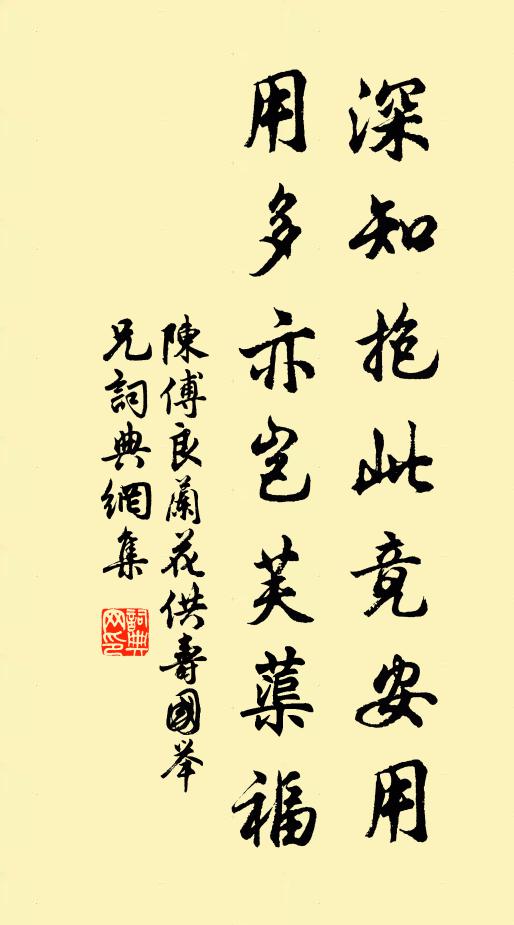 深知抱此竟安用
用多亦豈芙蕖福
陳傅良蘭花供壽國舉
兄詞典網集
詞典
网印